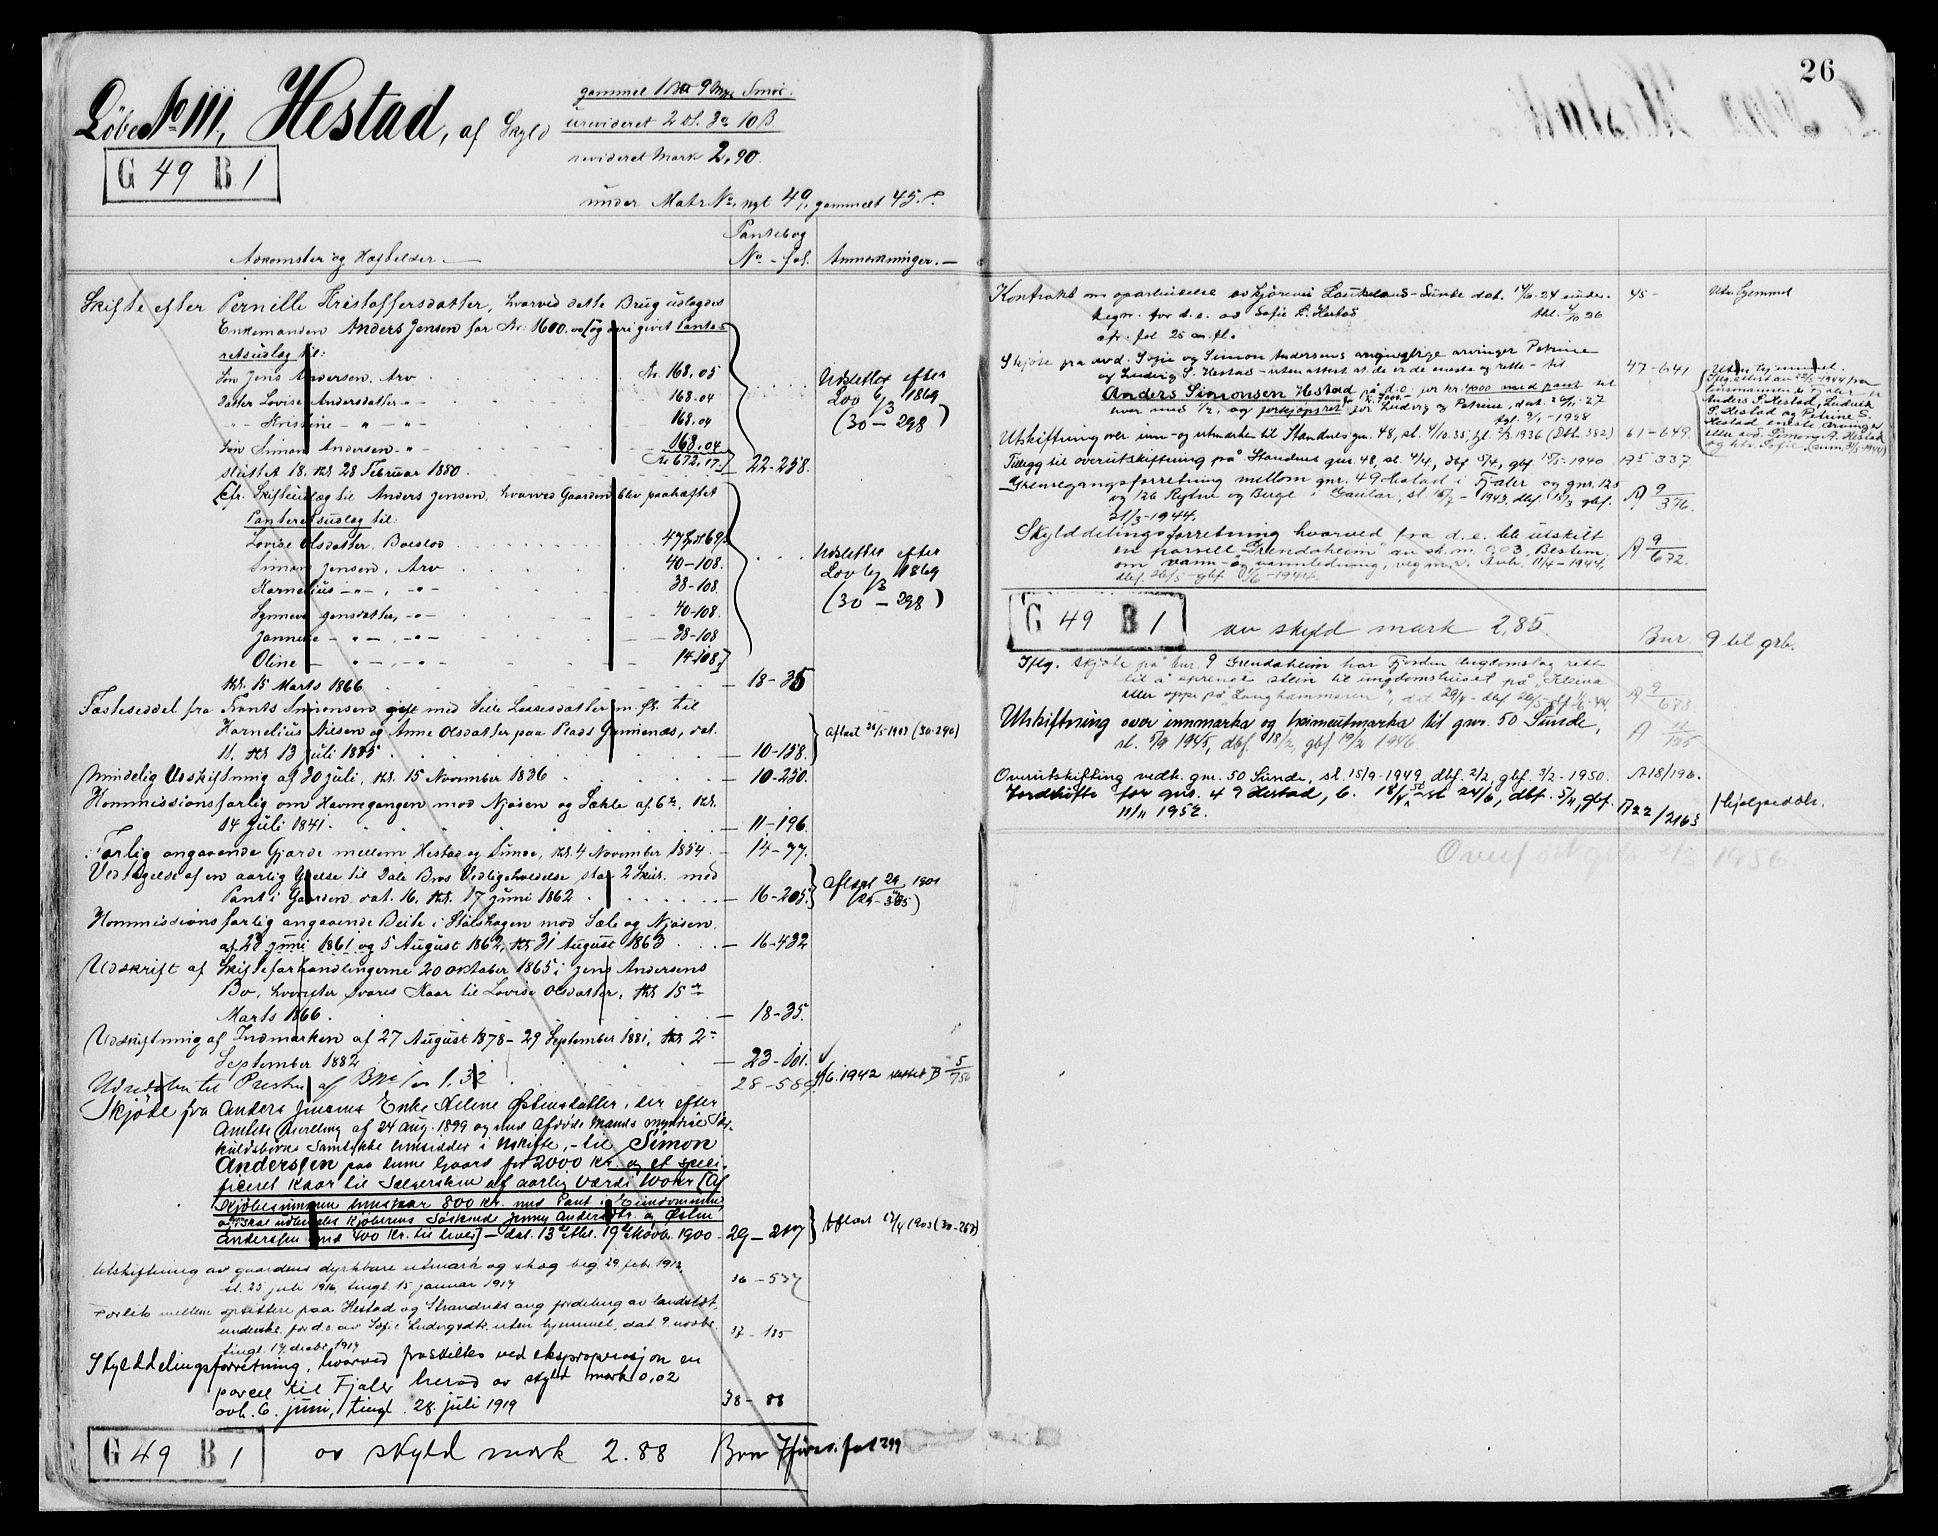 Løbe No 111, Hestad, af Skyld
gammel 1 9 Mrk Smør.
urevideret 2 10 ß
revideret Mark 2,90.
G 49 B 1
under Matr No. nyt 49, gammelt 45.
Adkomster og Hæftelser.
Pantebog
No - fol.
Anmærkninger.
Skifte efter Pernille Kristoffersdatter, hvorved dette Brug udlagdes
Enkemanden Anders Jensen for Kr. 1600. og deri givet Pante-
retsudlæg til:
Søn Jens Andersen, Arv Kr. 168.05
Datter Lovise Andersdatter - " - 168.04
- " - Kristine - " - " - 168.04
Søn Simon Andersen - " - 168.04
Kr 672.17
sluttet 18. thl. 28 Februar 1880. 22-258.
Udslettet efter
Lov 6/3 1869
(30-298)
[cfr. Skifteudlæg til Anders Jensen, hvorved Gaarden blev paahæftet
Panteretsudlæg til:
Lovise Olsdatter, Boeslod
Simon Jensen, Arv 40-108.
Kornelius - " - , - " - 38-108.
Synneve Jensdatter, - " - 40-108.
Jannike - " - , - " - 38-108
Oline - " - , - " - 14-108]
thl. 15 Marts 1866 18-35
Udslettes efter
Lov 6/3 1869
(30-298)
Fæsteseddel fra Frants Simonsen gift med Sille Lassesdatter m. fl. til
Kornelius Nilsen og Anne Olsdatter paa Plads Grønenæs, dat.
11. thl. 13 Juli 1885 10-158.
Aflæst 26/5 1903 (30-290)
Mindelig Udskiftning af 30 Juli, thl. 15 November 1836 10-250.
Kommissionsforlig om Havnegangen mod Njøsen og Sæhle af 6te, thl.
14 Juli 1841. 11-196.
Forlig angaaende Gjærde mellem Hestad og Sunde, thl. 4 November 1854 14-77.
Vedtagelse af en aarlig Ydelse til Dale Bros Vedligeholdelse stor 2 Skil. med
Pant i Gaarden, dat. 16, thl. 17 Juni 1862 16-205.
Kommissionsforlig angaaende Beite i Stølshagen mod Sæle og Njøsen,
af 28 Juni 1861 og 5 August 1862, thl. 31 August 1863 16-432
Udskrift af Skifteforhandlingerne 20 Oktober 1865 i Jens Andersens
Bo, hvorefter svares Kaar til Lovise Olsdatter, thl. 15de
Marts 1866 18-35.
Udskiftning af Indmarken af 27 August 1878 - 29 September 1881, thl. 2den
September 1882 23-101.
Udredslen til Presten af Bne 1 1,32 28-58
16. 1942 slettet B 5/750
Skjøde fra Anders Jensens Enke Helene Østensdatter, der efter
Amtets Bevilling af 24 Aug. 1899 og med Afdøde Mands myndige Sær-
kuldsbørns Samtykke hensidder i Uskifte, - til Simon
Anderssen paa denne Gaard for 2000 Kr. og et speci-
ficeret Kaar til Sælgersken af aarlig Værdi 100 Kr. [Af
Kjøbesummen henstaar 800 Kr. med Pant i Eiendommen,
og skal udbetales Kjøberens Søskende Jenny Andersdtr. og Østen
Anderssen med 400 Kr. til hver] - dat. 13de thl. 19de Novb. 1900 29-207
Utskiftning av gaardens dyrkbare utmark og skog beg. 29 feb. 1912,
sl. 25 juli 1916, tingl. 15 januar 1917 36-537
Forlik mellem opsittere paa Hestad og Strandnæs ang. fordeling av landslot,
underskr. for d.e. av Sofie Ludvigsdtr. uten hjemmel, dat. 9. novbr.
tingl. 17 decbr. 1917 37-185
Skylddelingsforretning, hvorved fraskiltes ved ekspropriasjon en
parcel til Fjaler herad av skyld mark 0,02
avh. 6. juni, tingl. 28 juli 1919 38-88
G 49 B 1 av skyld mark 2.88 Bnr 7 fol 299
26
Kontrakt om oparbeidelse av kjørevei Laukeland-Sunde dat. 14/6-24 under-
tegn. for d.e. av Sofie L. Hestad thl. 4/10 26 45 -
cfr. fol 25 m. fl.
Uten hjemmel
Skjøte fra avd. Sofie og Simon Andersens myndige arvinger Petrine
og Ludvig S. Hestad - uten attest at de er de eneste og rette - til
Anders Simonsen Hestad på d.e. for kr. 4000 med pant
og forkjøpsret for Ludvig og Petrine, dat. 26/11-27
tgl. 9/1-1928 47-641
Uten hjemmel.
Iflg. attest av 22/5-1944 fra
lensmannen i Fjaler er
Anders S. Hestad, Ludvik
S. Hestad og Petrine S.
Hestad eneste arvinger
etter avd. Simon A. Hestad
Utskiftning over inn- og utmarken til Standnes gnr. 48, sl. 4/10.35, tgl. 2/3.1936 (Dbk. 382) 61-649.
Tillegg til overutskiftning på Standnes gnr. 48, sl. 4/4, dbf. 5/4, gbf. 15/5-1940 A5-337.
Grensegangsforretning mellom gnr. 49 Hestad i Fjaler og gnr. 125
og 126 Rytne og Berge i Gaular, sl. 16/7-1943, dbf. 15/3 gbf.
21/3-1944. A 9/376.
Skylddelingsforretning hvorved fra d.e. ble utskilt
en parsell "Grendaheim" av sk. m. 0.03. Bestem.
om vann- og vannledning, veg m.v. Avh. 11/4-1944,
dbf. 26/5 - gbf. 1/6-1944. A 9/672.
G 49 B 1 av skyld mark 2,85. Bnr 9 til grb.
Iflg. skjøte på bnr. 9 Grendaheim har Fjorden Ungdomslag rett
til å sprenge stein til ungdomshuset på "Kleiva"
eller oppe på "Langhammaren", dat 29/4 - dbf 26/5 - gbf 1/6-44. A 9/673.
Utskiftning over innmarka og heimeutmarka til gnr. 50 Sunde,
sl. 5/9 1945, dbf. 18/2, gbf. 19/2 1946. A 11/125
Overutskifting vedk. gnr. 50 Sunde, sl. 15/9-1949, dbf. 2/2, gbf. 3/2-1950. A18/196.
Jordskifte for gnr. 49 Hestad, b. 18/4 sl 24/6, dbf. 5/11, gbf.
11/11 1952. A22/2163 Hjelpedok.
Overført grb. 1956